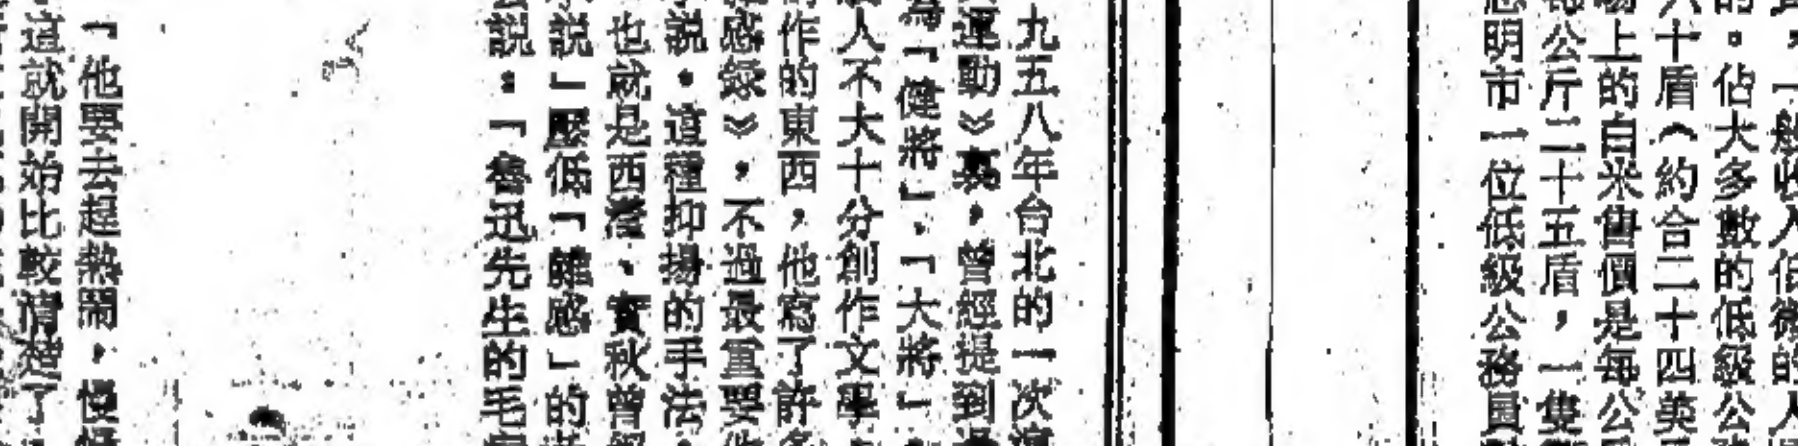 ，一般收入低微的人
的。佔大多數的低級公
六十盾（約合二十四英
場上的白米售價是每公
每公斤二十五盾，一隻
志明市一位低級公務員
九五八年台北的一次演
運動》裏，曾經提到
為「健將」、「大將」
人不大十分創作文學
作的東西，他寫了許多
感錄》，不過最重要
說。這種抑揚的手法，
也就是西瀅、實秋曾
說」壓低「雜感」的
說：「魯迅先生的毛
「他要去趕熱鬧，慢慢
這就開始比較清楚了